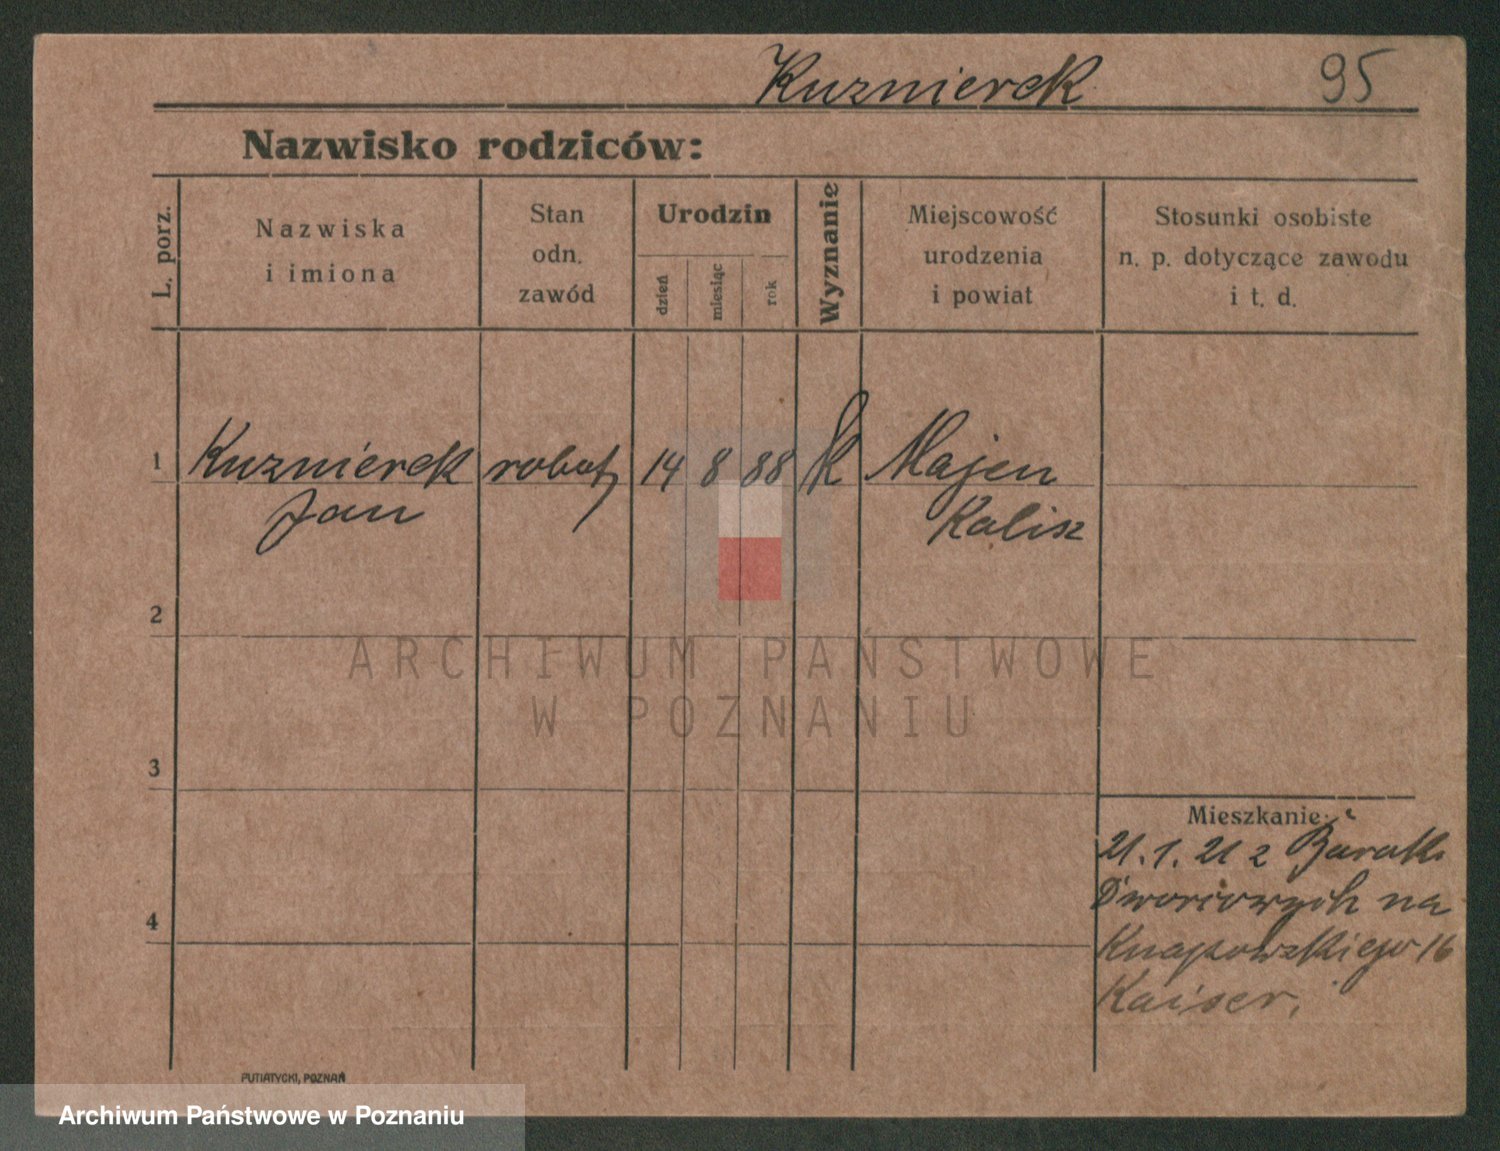 Kuznierek 95
Nazwisko rodziców:
L. porz.
Nazwiska
i imiona
Stan
odn.
zawód
Urodzin
dzień
miesiąc
rok
Wyznanie
Miejscowość
urodzenia
i powiat
Stosunki osobiste
n. p. dotyczące zawodu
i t. d.
1 Kuznierek robot 14 8 88 k Majen
Jan Kalisz
2
ARCHIWUM PAŃSTWOWE
W POZNANIU
3
Mieszkanie:
21.1.21 z Barak
4
na
Knapowskiego 16
Kaiser.
PUTIATYCKI, POZNAŃ
Archiwum Państwowe w Poznaniu